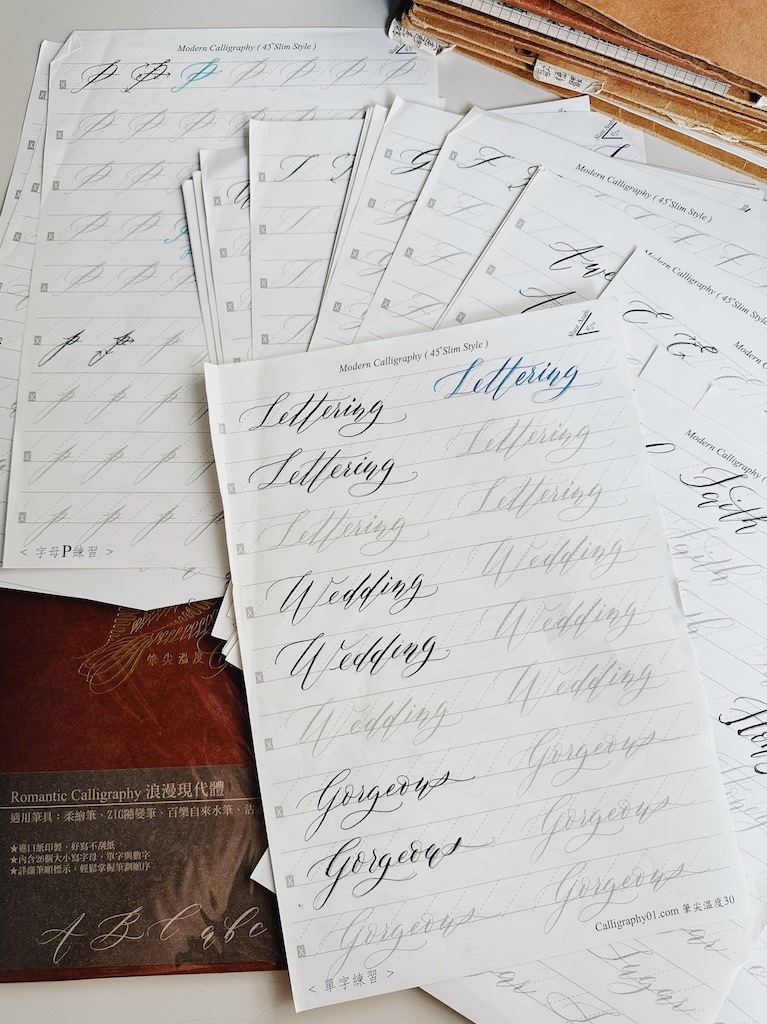 Modern Calligraphy ( 45°Slim Style )
45°
P P P P P P P
P P P P P P P
P P P P
P P P P
P P P P
p p
p p p p
p p p p
p p p p
< 字母P練習 >
I
I
I
I
G
F
Modern Calligraphy ( 45°Slim Style )
Awe
Modern Calligraphy ( 45°Slim Style )
E E E
Modern
Modern Calligraphy (
Faith
Faith
Honey
Honey
Sugar
Modern Calligraphy ( 45°Slim Style )
45°
Lettering Lettering
Lettering Lettering
Lettering Lettering
Wedding Wedding
Wedding Wedding
Wedding Wedding
Gorgeous Gorgeous
Gorgeous Gorgeous
Gorgeous Gorgeous
Calligraphy01.com 筆尖溫度30
< 單字練習 >
筆尖溫度
Romantic Calligraphy 浪漫現代體
適用筆具：柔繪筆、ZIG隨變筆、百樂自來水筆、沾
★進口紙印製，好寫不刮紙
★內含26個大小寫字母，單字與數字
★詳細筆順標示，輕鬆掌握筆劃順序
A B C a b c